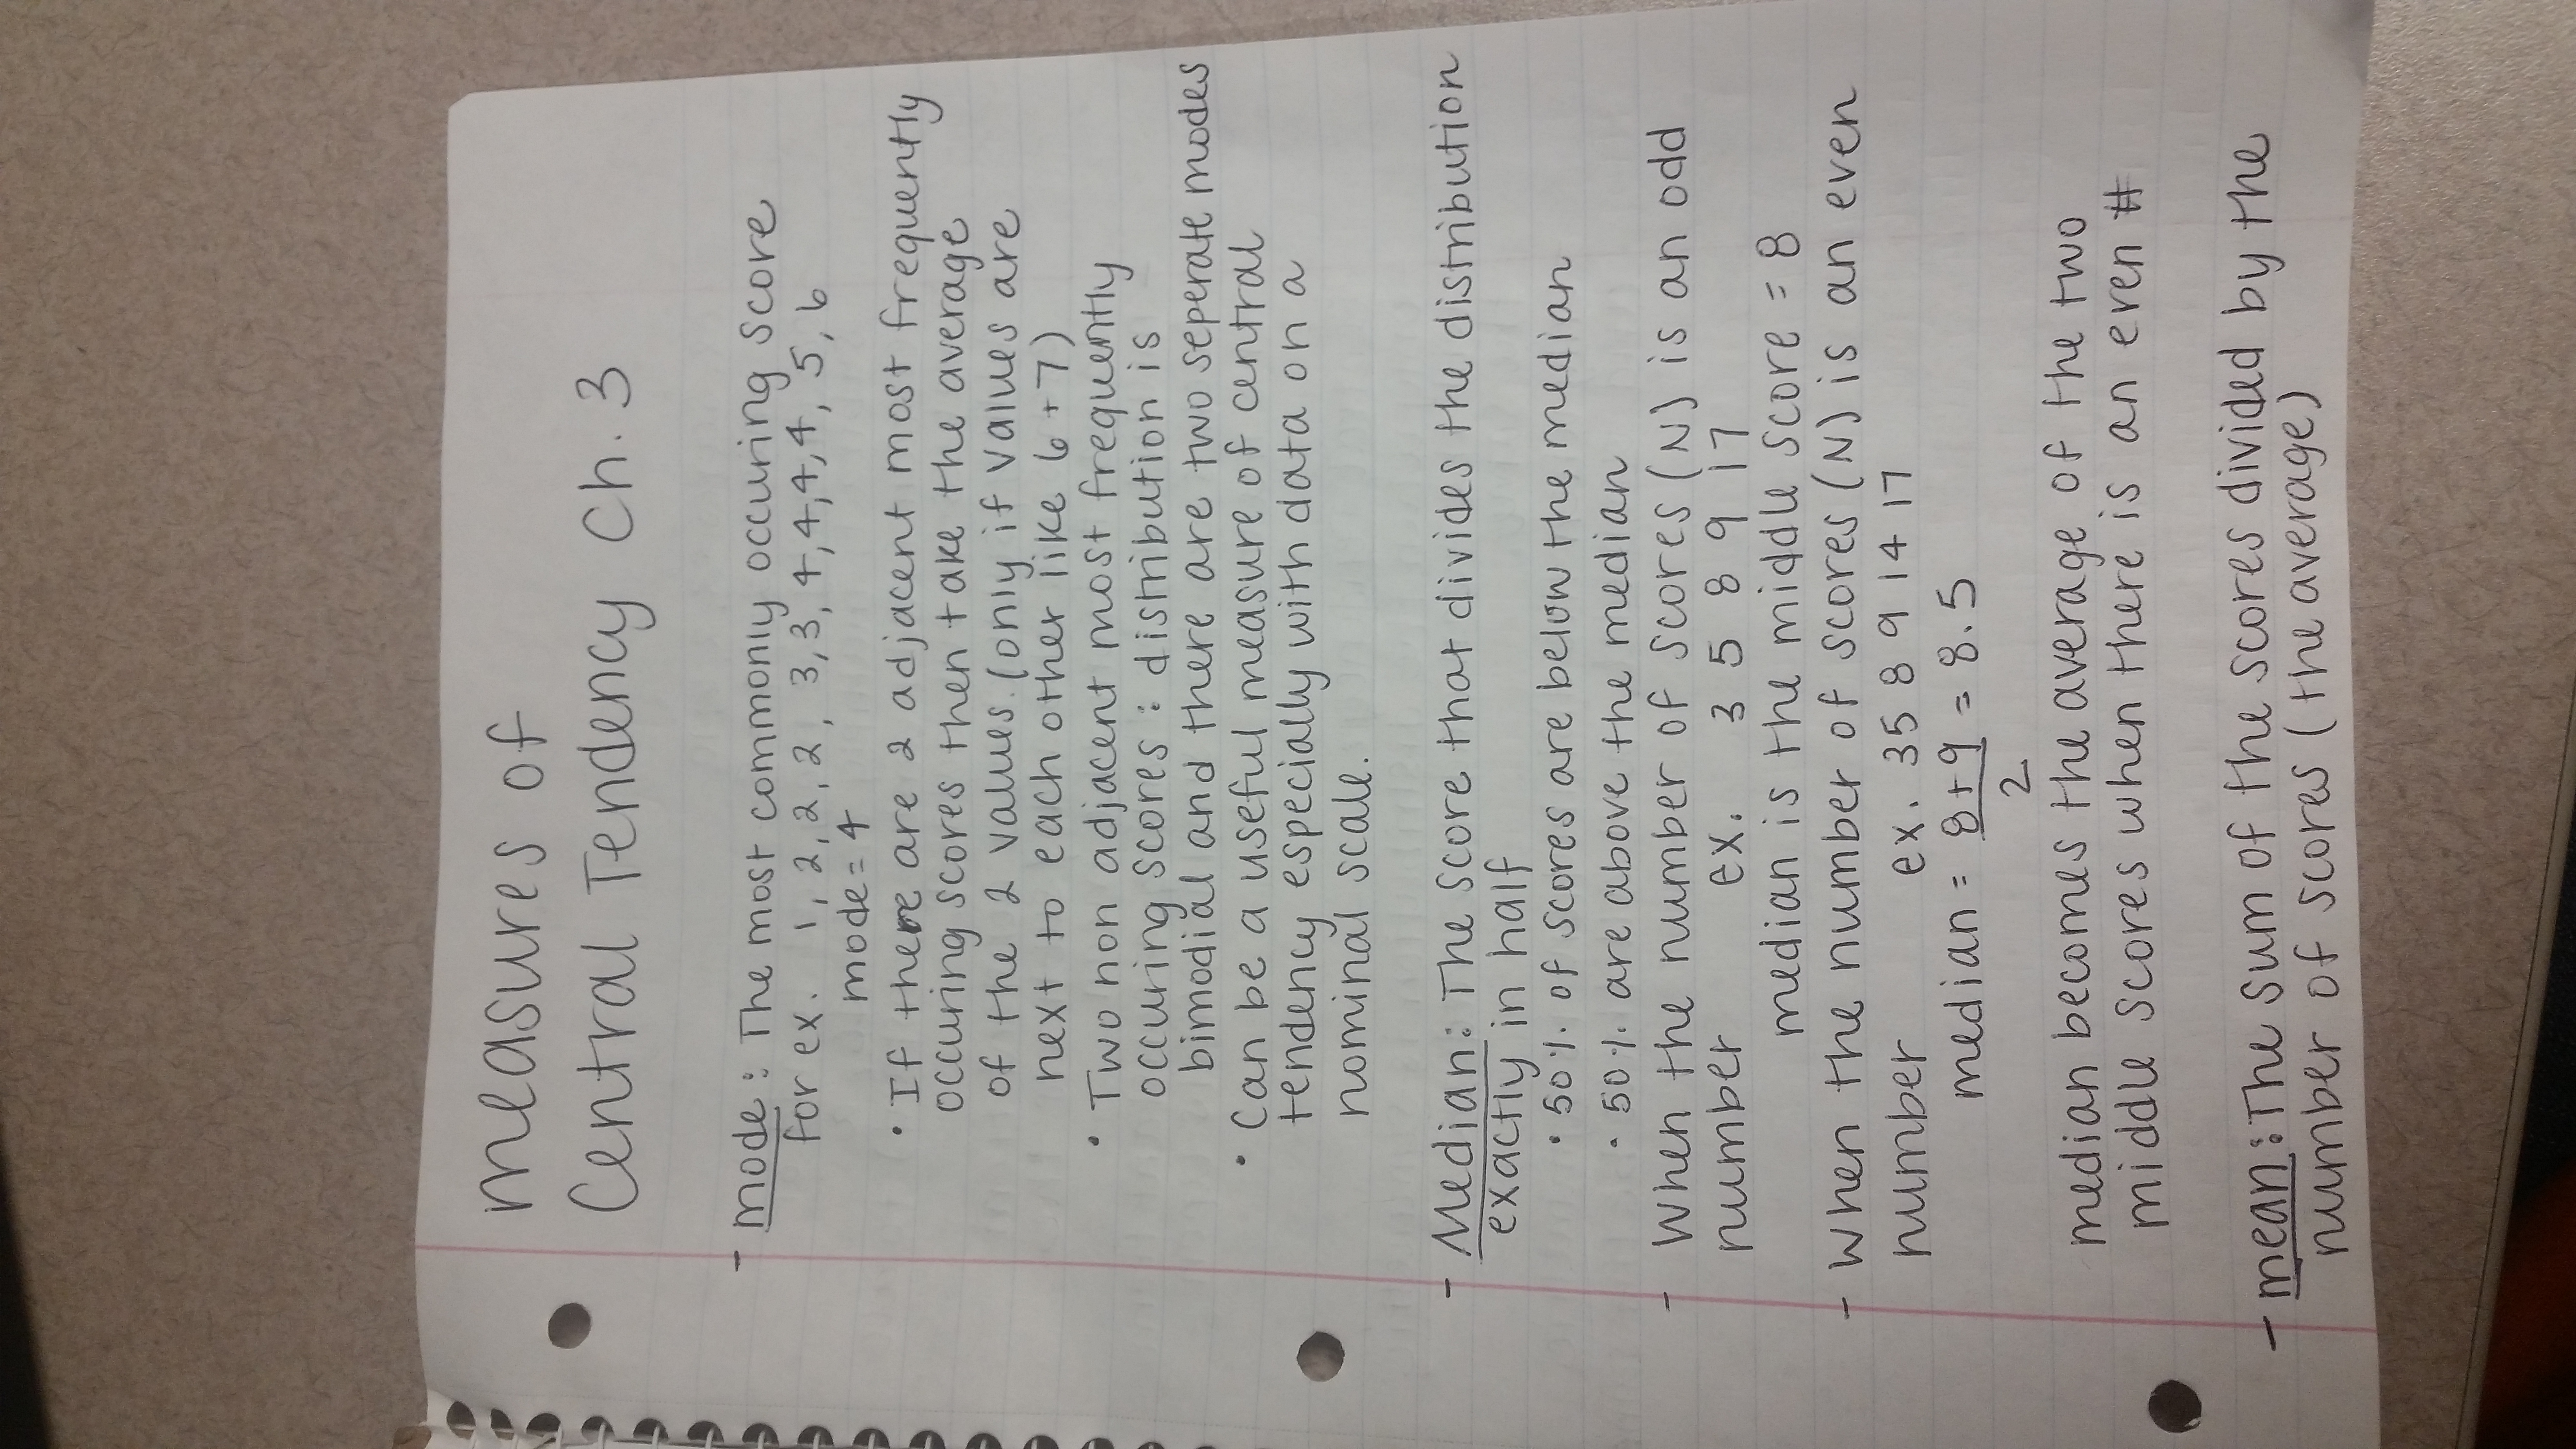 measures of
Central Tendency Ch. 3
- mode: The most commonly occuring score
for ex. 1, 2, 2, 2, 2, 3, 3, 4, 4, 4, 4, 5, 6
mode = 4
• If there are 2 adjacent most frequently
occuring scores then take the average
of the 2 values. (only if values are
next to each other like 6 + 7)
• Two non adjacent most frequently
occuring scores : distribution is
bimodial and there are two seperate modes
• Can be a useful measure of central
tendency especially with data on a
nominal scale.
- Median: The score that divides the distribution
exactly in half
• 50% of scores are below the median
• 50% are above the median
- When the number of scores (N) is an odd
number ex. 3 5 8 9 17
median is the middle score = 8
- When the number of scores (N) is an even
number ex. 3 5 8 9 14 17
median = 8+9 = 8.5
2
median becomes the average of the two
middle scores when there is an even #
- mean: The sum of the scores divided by the
number of scores (the average)